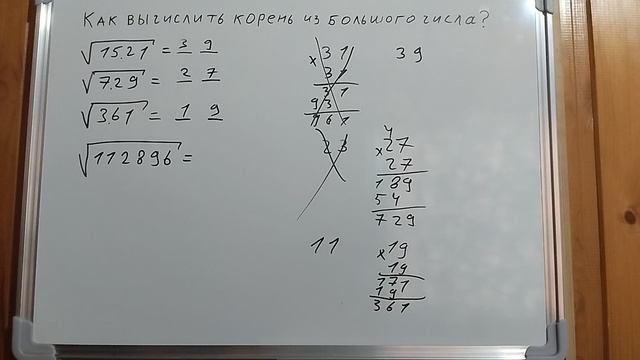 Как вычислить корень из большого числа?
√15.21 = 3 9
√7.29 = 2 7
√3.61 = 1 9
√112896 =
× 31
31
31
93
961
23
11
39
4
×27
27
189
54
729
×19
19
171
19
361